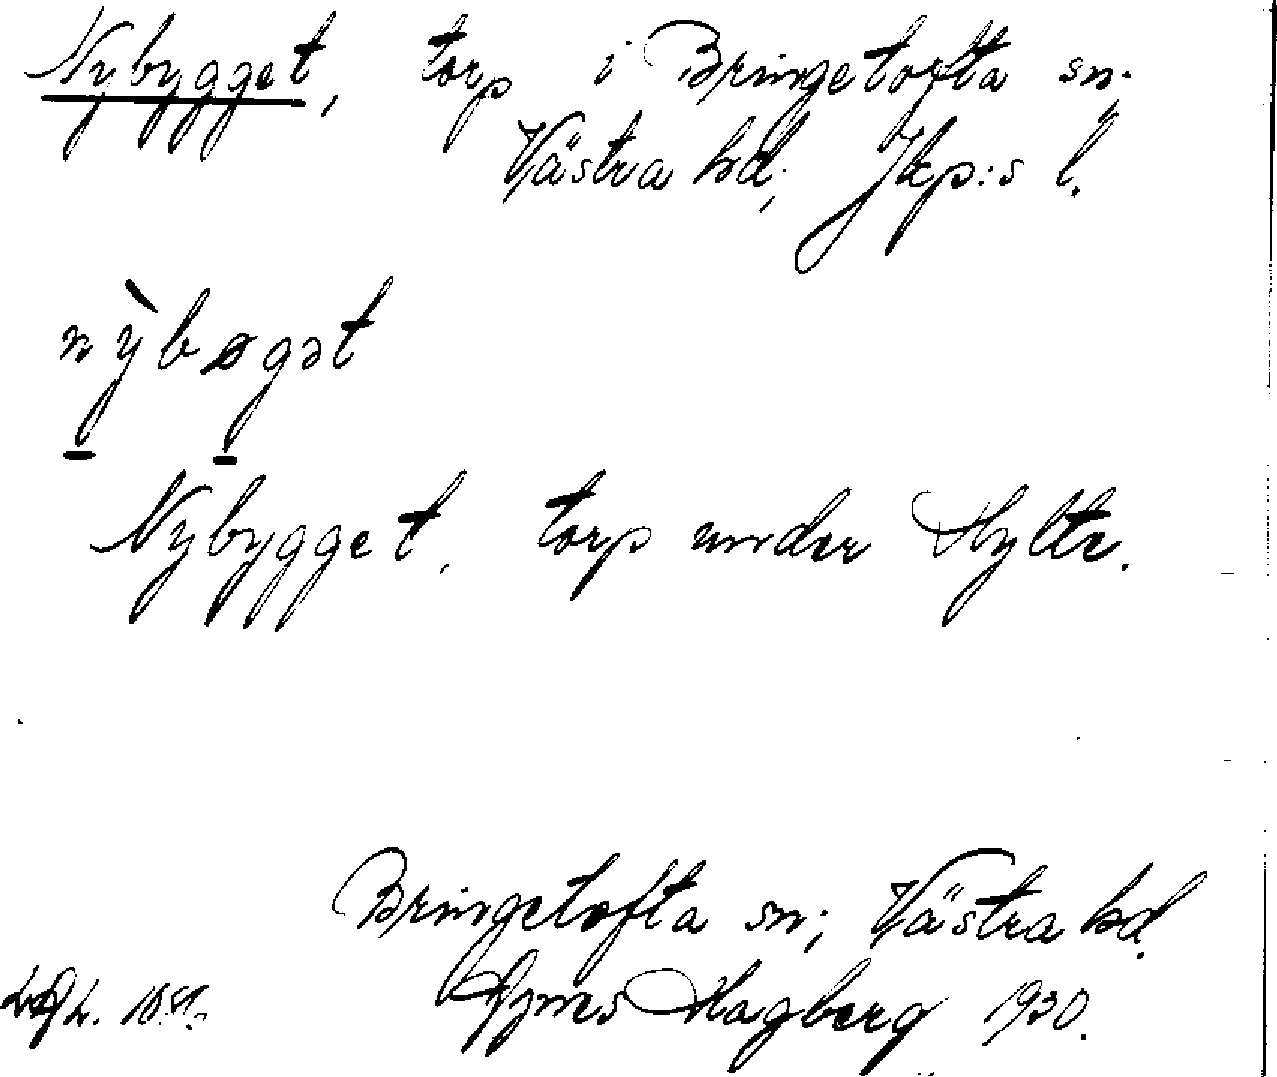 Nybygget, torp i Bringetofta sn;
Västra hd; Jkp:s l.
nỳbøgət
Nybygget, torp under Hylte.
Bringetofta sn; Västra hd.
Agnes Hagberg 1930.